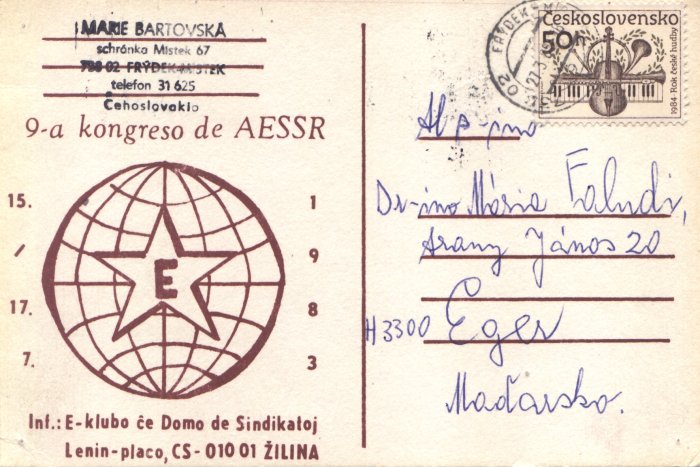 MARIE BARTOVSKÁ
schránka Místek 67
738 02 FRÝDEK-MÍSTEK
telefon 31 625
Ĉeĥoslovakio
9-a kongreso de AESSR
15.
/
17.
7.
E
1
9
8
3
Inf.: E-klubo ĉe Domo de Sindikatoj
Lenin-placo, CS-010 01 ŽILINA
FRÝDEK-MÍSTEK
02
Československo
50h
1984 Rok české hudby
Al p-ino
Dr-ino Mária Faludi,
Arany János 20
H3300 Eger
Maďarsko.